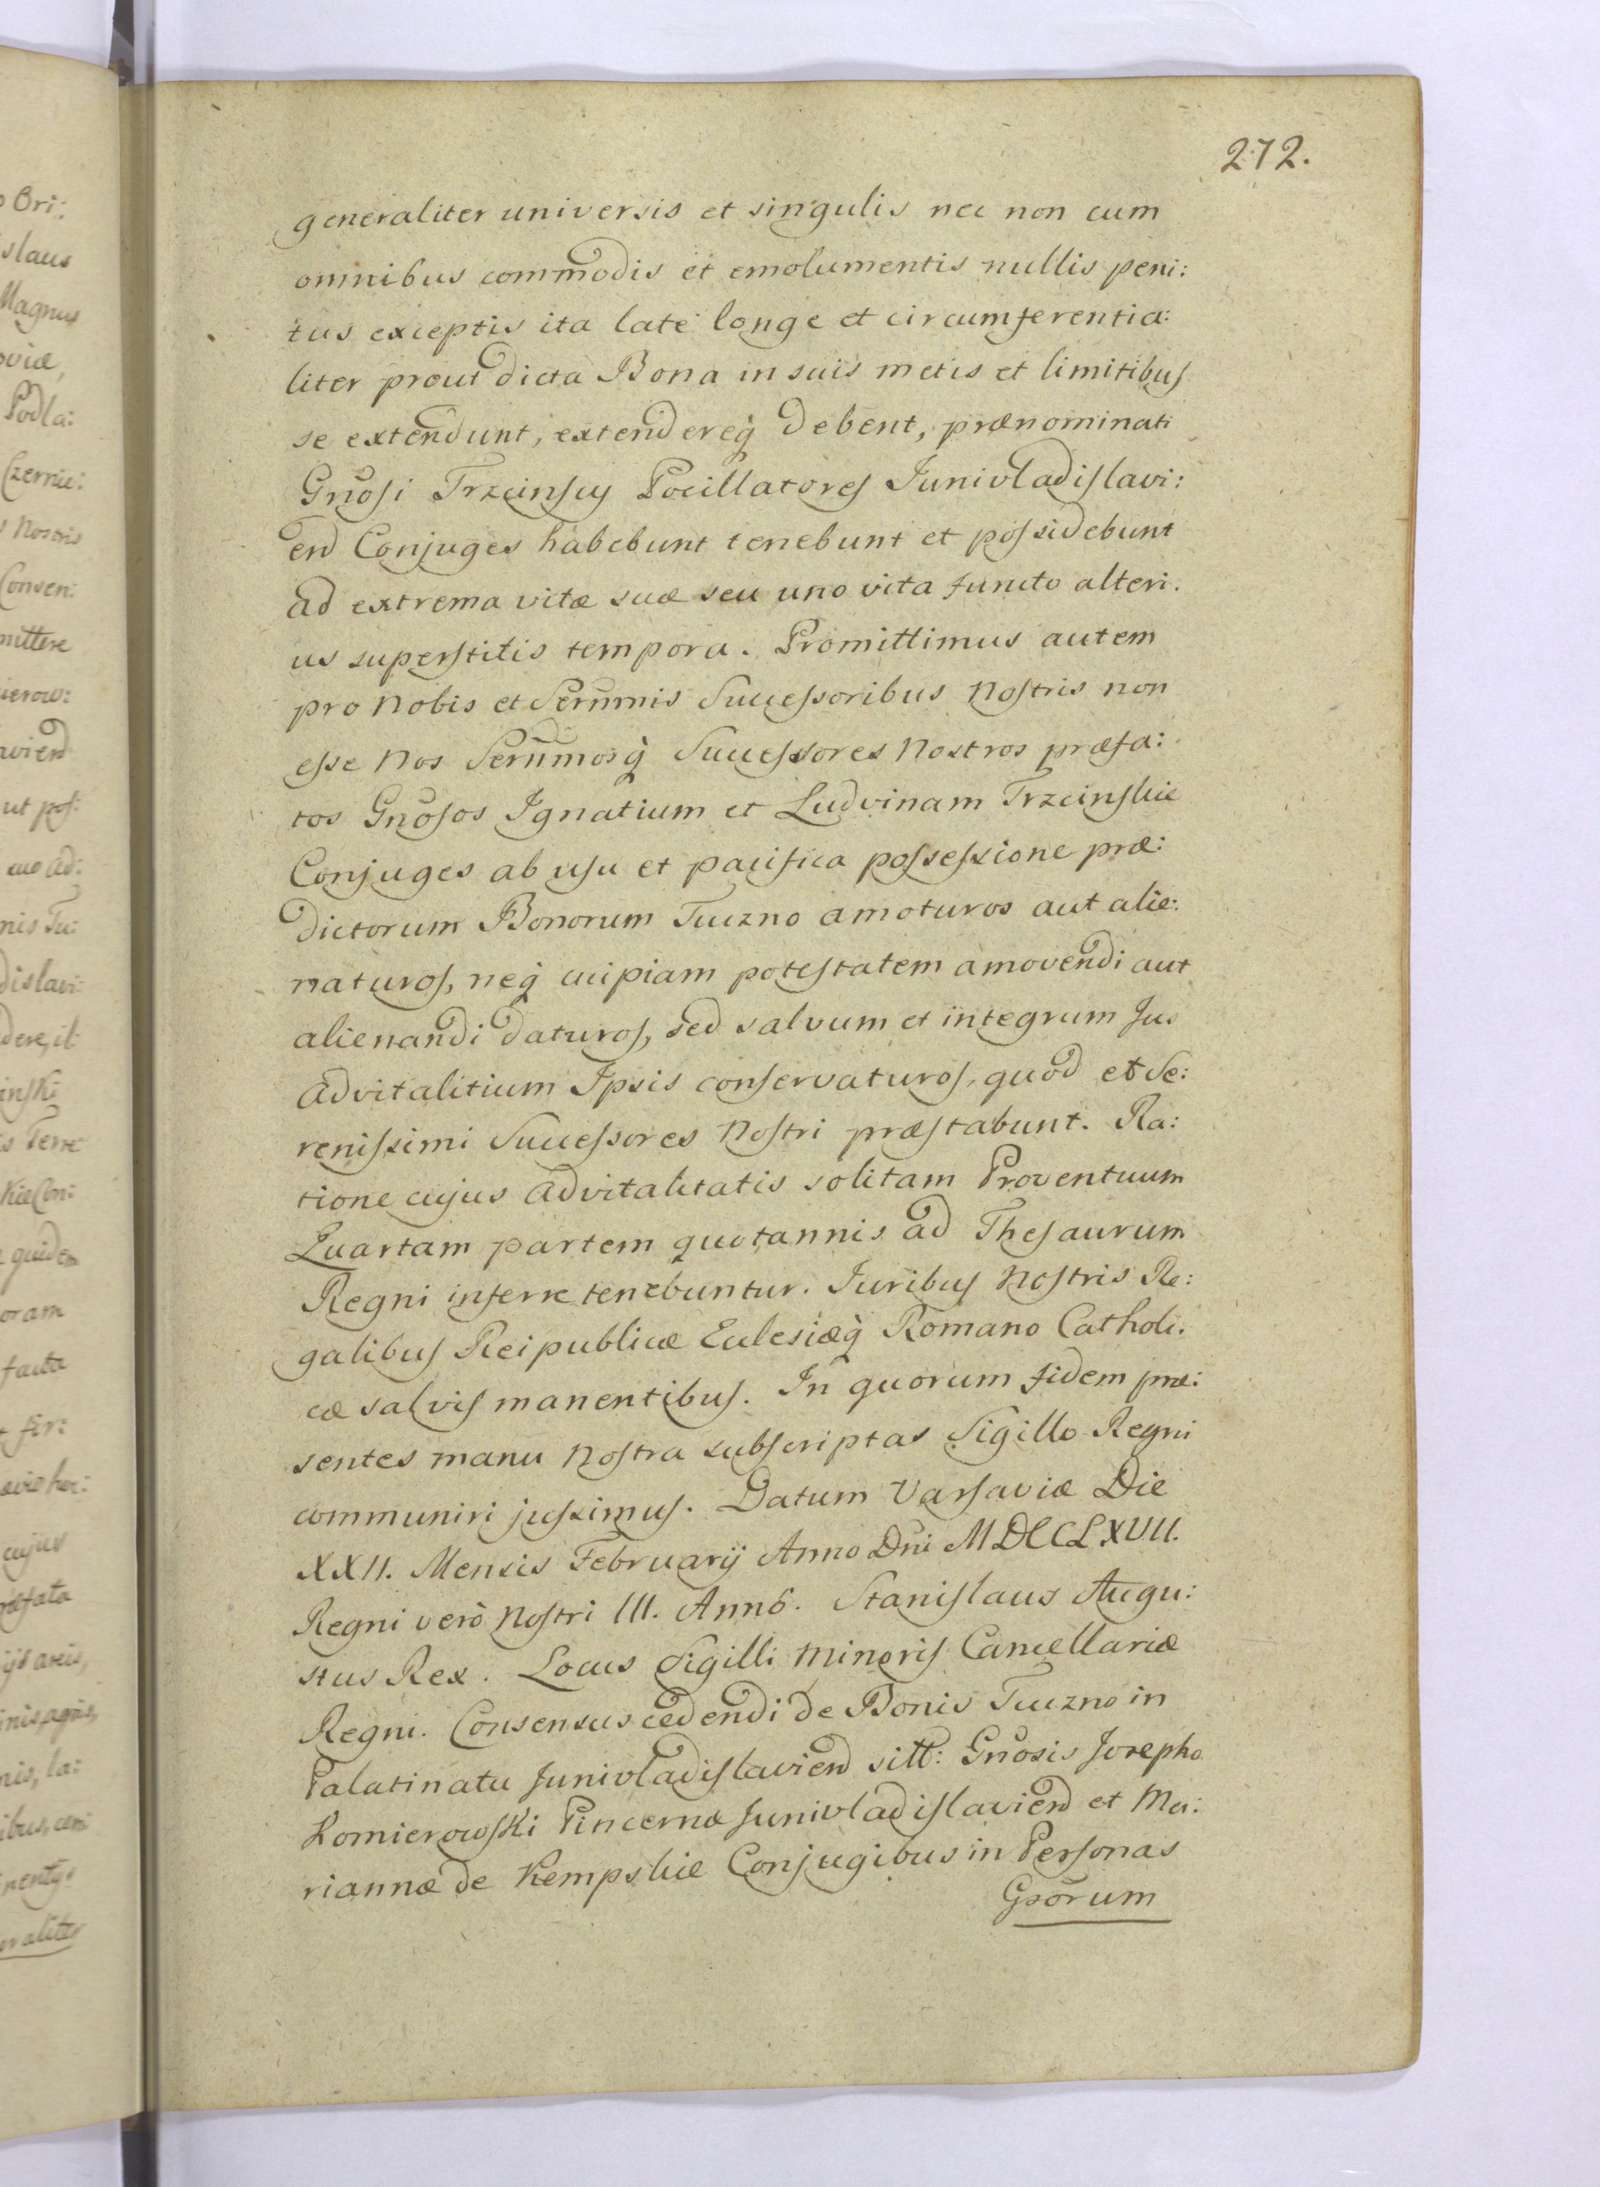 272.
generaliter universis et singulis nec non cum
omnibus commodis et emolumentis nullis peni:
tus exceptis ita late longe et circumferentia:
liter prout dicta Bona in suis metis et limitibuſ
se extendunt, extendereq̀ debent, prænominati
Gnõſi Trzcinſcy Pocillatoreſ Junivladiſlavi:
en̄ Conjuges habebunt tenebunt et poſsidebunt
ad extrema vitæ suæ seu uno vita functo alteri.
us superſtitis tempora. Promittimus autem
pro Nobis et Serũmis Succeſsoribus Noſtris non
eſse Nos Serũmosq̀ Succeſsores Nostros præfa:
tos Gnõſos Ignatium et Ludvinam Trzcinſkie
Conjuges ab uſu et pacifica poſseſsione præ:
dictorum Bonorum Tuczno amoturos aut alie:
naturoſ, neq̀ cuipiam poteſtatem amovendi aut
alienandi daturoſ, sed salvum et integrum Jus
advitalitium Ipsis conſervaturoſ, quod et Se:
reniſsimi Succeſsores Noſtri præſtabunt. Ra:
tione cujus advitalitatis solitam Proventuum
Quartam partem quotannis ad Theſaurum
Regni inferre tenebuntur. Juribuſ Noſtris Re:
galibuſ Reipublicæ Ecclesiæq̀ Romano Catholi.
cæ salviſ manentibuſ. In quorum fidem præ:
sentes manu Noſtra subſcriptas Sigillo Regni
communiri juſsimuſ. Datum Varſaviæ Die
XXII. Mensis Februarij Anno Dn̄i MDCCLXVII.
Regni verò Noſtri III. Annō. Staniſlaus Augu:
stus Rex. Locus Sigilli Minoriſ Cancellariæ
Regni. Consensus cedendi de Bonis Tuczno in
Palatinatu Junivladiſlavien̄ sitt: Gnõsis Josepho
Łomierowſki Pincernæ Junivladiſlavien̄ et Ma:
riannæ de Kempskie Conjugibus in Perſonas
Gsõrum